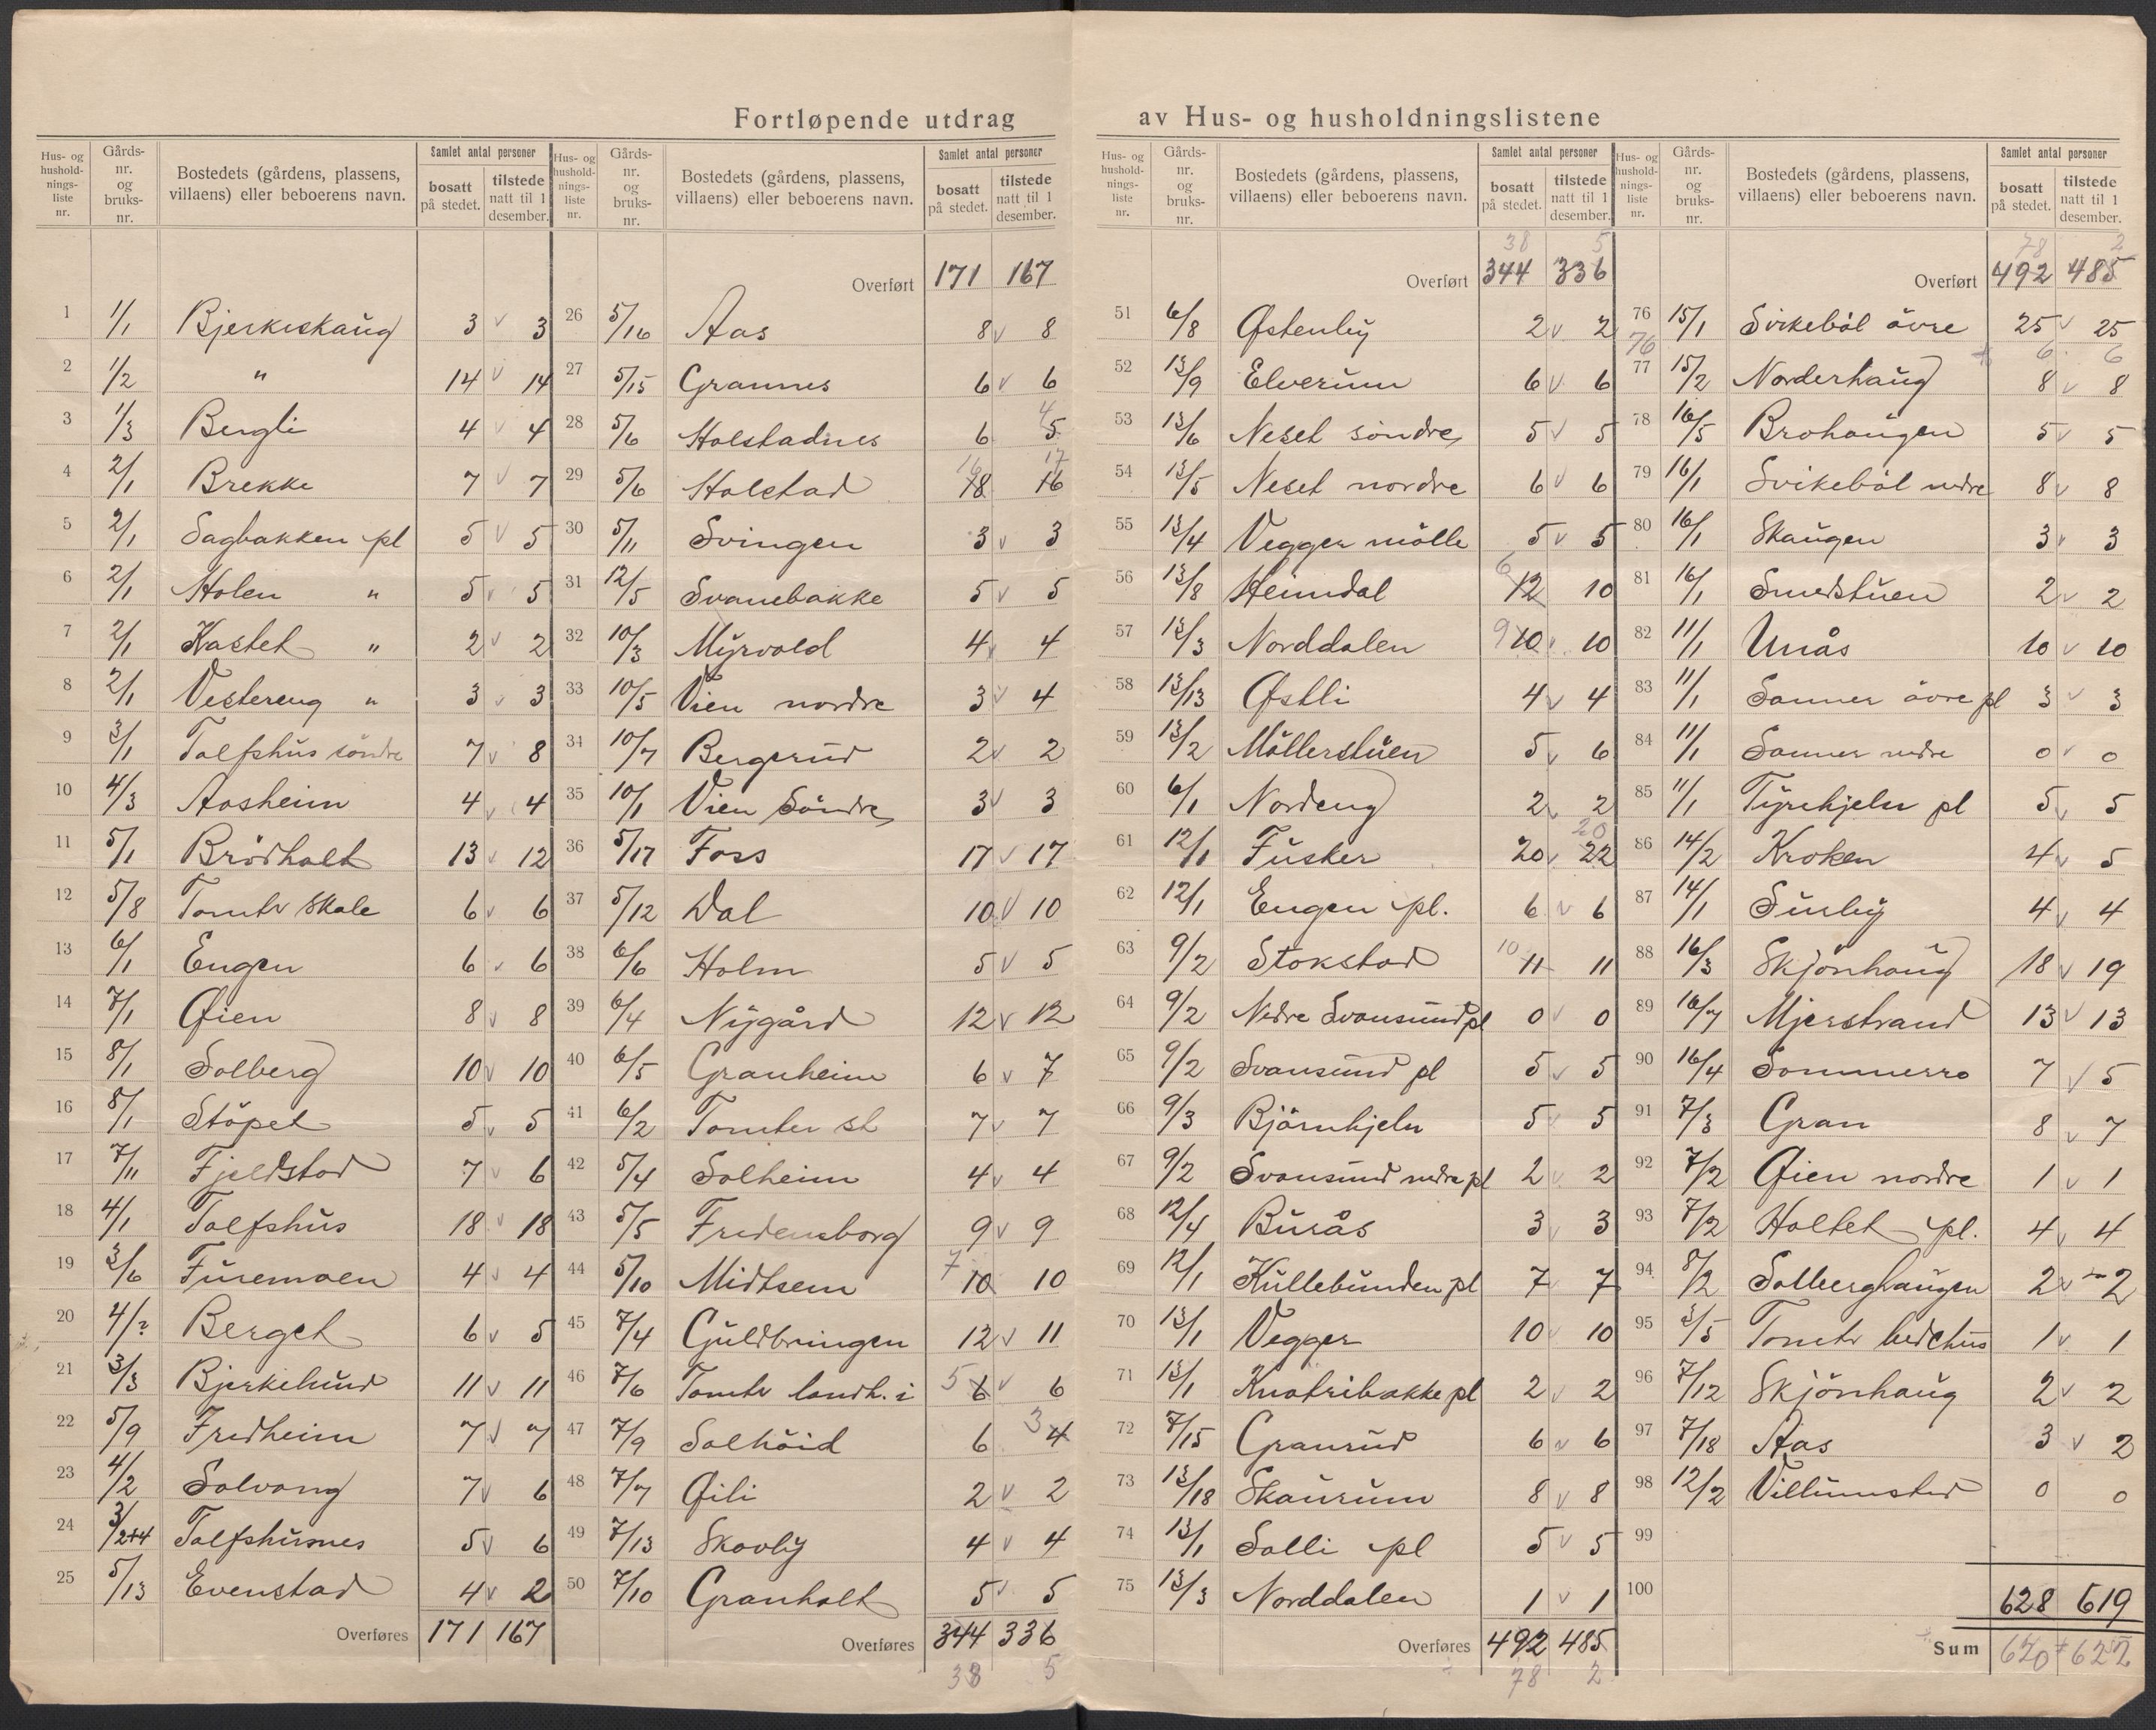 Fortløpende utdrag av Hus- og husholdningslistene
Hus- og husholdningsliste nr. | Gårds-nr. og bruks-nr. | Bostedets (gårdens, plassens, villaens) eller beboerens navn. | Samlet antal personer bosatt på stedet. | tilstede natt til 1 desember.
1 1/1 Bjerkeskaug 3 v 3
2 1/2 " 14 v 14
3 1/3 Bergli 4 v 4
4 2/1 Brekke 7 v 7
5 2/1 Sagbakken pl 5 v 5
6 2/1 Holen " 5 v 5
7 2/1 Kastet " 2 v 2
8 2/1 Vestereng " 3 v 3
9 3/1 Tolfshus söndre 7 v 8
10 4/3 Aasheim 4 v 4
11 5/1 Brödholt 13 v 12
12 5/8 Tomter Skole 6 v 6
13 6/1 Engen 6 v 6
14 7/1 Øien 8 v 8
15 8/1 Solberg 10 v 10
16 8/1 Stöpet 5 v 5
17 7/11 Fjeldstad 7 v 6
18 4/1 Tolfshus 18 v 18
19 3/6 Furemoen 4 v 4
20 4/? Berget 6 v 5
21 3/3 Bjerkelund 11 v 11
22 5/9 Fredheim 7 v 7
23 4/2 Solvang 7 v 6
24 3/2+4 Tolfshusnes 5 v 6
25 5/13 Evenstad 4 v 2
Overføres 171 167
Hus- og husholdningsliste nr. | Gårds-nr. og bruks-nr. | Bostedets (gårdens, plassens, villaens) eller beboerens navn. | Samlet antal personer bosatt på stedet. | tilstede natt til 1 desember.
Overført 171 167
26 5/16 Aas 8 v 8
27 5/15 Grannes 6 v 6
28 5/6 Holstadnes 6 5 4
29 5/6 Holstad 18 16 16 17
30 5/11 Svingen 3 v 3
31 12/5 Svanebakke 5 v 5
32 10/3 Myrvold 4 v 4
33 10/5 Vien nordre 3 v 4
34 10/7 Bergerud 2 v 2
35 10/1 Vien Söndre 3 v 3
36 5/17 Foss 17 v 17
37 5/12 Dal 10 v 10
38 6/6 Holm 5 v 5
39 6/4 Nygård 12 v 12
40 6/5 Granheim 6 v 7
41 6/2 Tomter st 7 v 7
42 5/4 Solheim 4 v 4
43 5/5 Fredensborg 9 v 9
44 5/10 Midtsem 7 10 10
45 7/4 Guldbringen 12 v 11
46 7/6 Tomter landh. i 5 6 v 6
47 7/9 Solhöid 6 3 4
48 7/7 Øili 2 v 2
49 7/13 Skovly 4 v 4
50 7/10 Granholt 5 v 5
Overføres 344 336
38 5
Hus- og husholdningsliste nr. | Gårds-nr. og bruks-nr. | Bostedets (gårdens, plassens, villaens) eller beboerens navn. | Samlet antal personer bosatt på stedet. | tilstede natt til 1 desember.
38 5
Overført 344 336
51 6/8 Østenby 2 v 2
52 13/9 Elverum 6 v 6
53 13/6 Neset söndre 5 v 5
54 13/5 Neset nordre 6 v 6
55 13/4 Vegger mölle 5 v 5
56 13/8 Heimdal 6 12 10
57 13/3 Norddalen 9 10 v 10
58 13/13 Østli 4 v 4
59 13/2 Möllerstuen 5 v 6
60 6/1 Nordeng 2 v 2
61 12/1 Fusker 20 v 22 20
62 12/1 Engen pl. 6 v 6
63 9/2 Stokstad 10 11 11
64 9/2 Nedre Svansund pl 0 v 0
65 9/2 Svansund pl 5 v 5
66 9/3 Björnhjeln 5 v 5
67 9/2 Svansund nedre pl 2 v 2
68 12/4 Burås 3 v 3
69 12/1 Kullebunden pl 7 v 7
70 13/1 Vegger 10 v 10
71 13/1 Knatribakke pl 2 v 2
72 7/15 Granrud 6 v 6
73 13/18 Skaurum 8 v 8
74 13/1 Solli pl 5 v 5
75 13/3 Norddalen 1 v 1
Overføres 492 485
78 2
Hus- og husholdningsliste nr. | Gårds-nr. og bruks-nr. | Bostedets (gårdens, plassens, villaens) eller beboerens navn. | Samlet antal personer bosatt på stedet. | tilstede natt til 1 desember.
78 2
Overført 492 485
76 15/1 Svikeböl övre 25 v 25
76 6 6
77 15/2 Norderhaug 8 v 8
78 16/5 Brohaugen 5 v 5
79 16/1 Svikeböl nedre 8 v 8
80 16/1 Skaugen 3 v 3
81 16/1 Smedstuen 2 v 2
82 11/1 Unås 10 v 10
83 11/1 Sanner övre pl 3 v 3
84 11/1 Sanner nedre 0 v 0
85 11/1 Tyrihjeln pl 5 v 5
86 14/2 Kroken 4 v 5
87 14/1 Surby 4 v 4
88 16/3 Skjönhaug 18 v 19
89 16/7 Mjerstrand 13 v 13
90 16/4 Sommerro 7 v 5
91 7/3 Gran 8 v 7
92 7/2 Øien nordre 1 v 1
93 7/2 Holtet pl. 4 v 4
94 8/2 Solberghaugen 2 v 2
95 3/5 Tomter bedehus 1 v 1
96 7/12 Skjönhaug 2 v 2
97 7/18 Aas 3 v 2
98 12/2 Villumstad 0 0
99
100
628 619
Sum 620 622